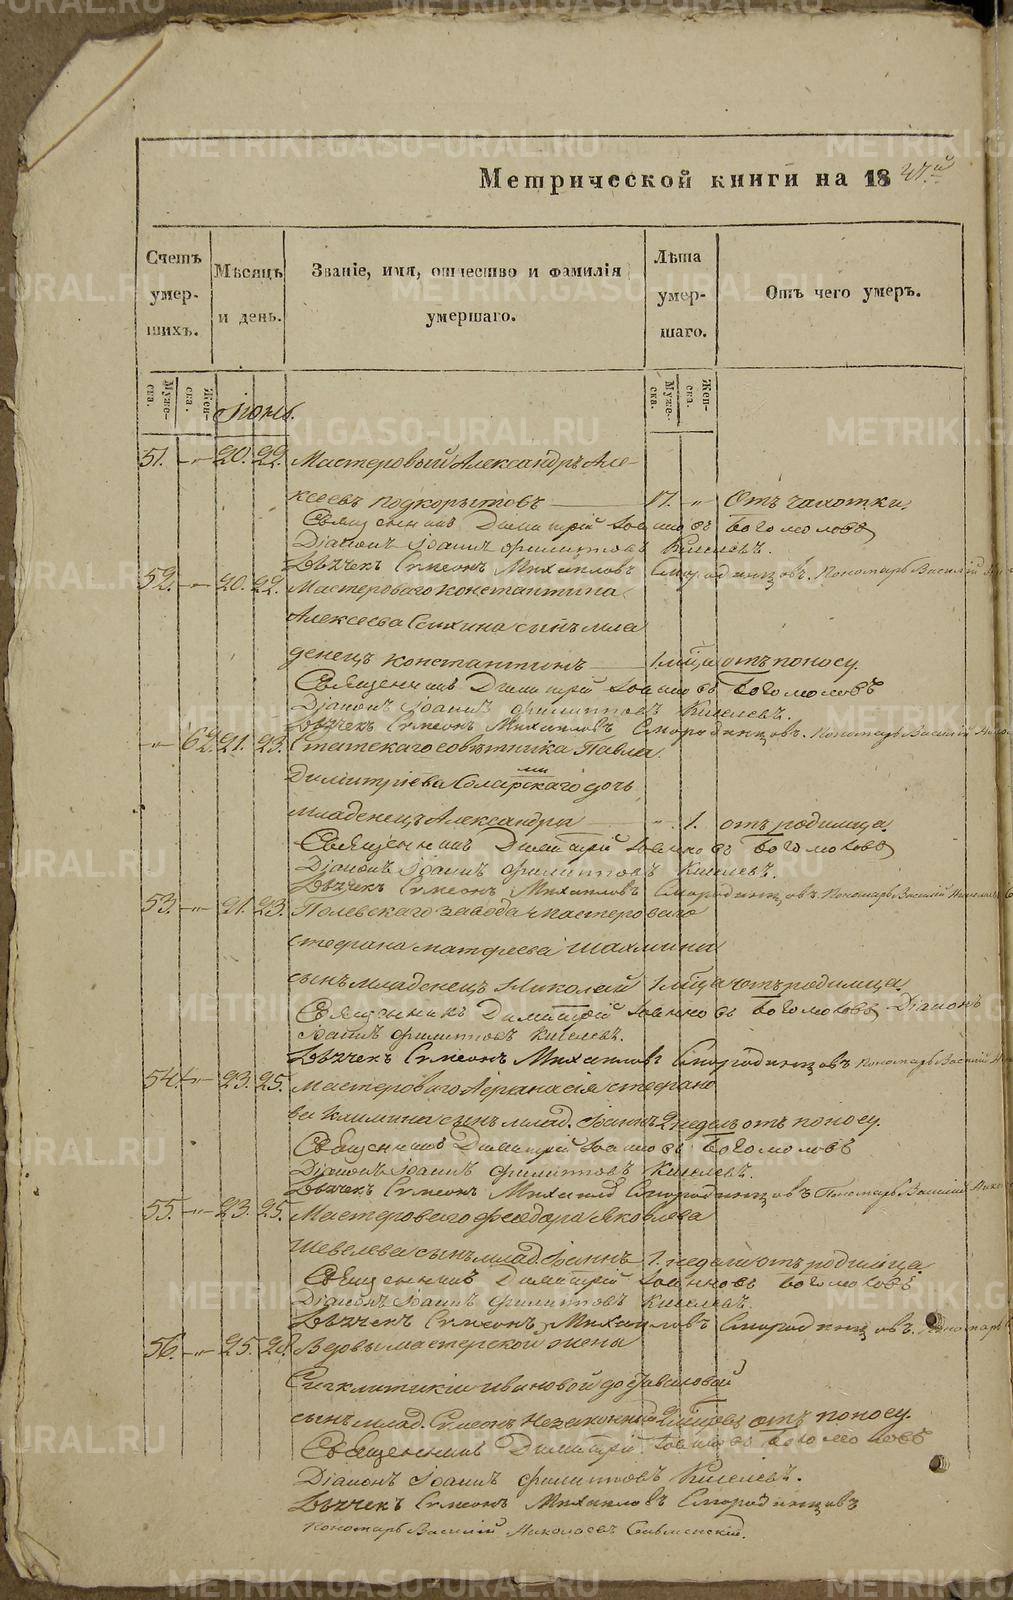 Метрической книги на 1847й
Счетъ умершихъ.
Мѣсяцъ и день.
Званіе, имя, отчество и фамилія умершаго.
Лѣта умершаго.
Отъ чего умеръ.
Муже-ска.
Жен-ска.
Муже-ска.
Жен-ска.
Іюнь.
51. -„- 20. 22. Мастеровый Александръ Але-
ксеевъ Подкорытовъ 17. „ Отъ чахотки.
Священникъ Димитрій Іоанновъ Богомоловъ
Діаконъ Іоаннъ Филипповъ Киселевъ.
Дьячекъ Симеонъ Михайловъ Смородинцовъ. Пономарь Василій
52. -„- 20. 22. Мастероваго Константина
Алексеева сынъ мла
денецъ Константинъ 1 мца отъ поносу.
Священникъ Димитрій Іоанновъ Богомоловъ
Діаконъ Іоаннъ Филипповъ Киселевъ.
Дьячекъ Симеонъ Михайловъ Смородинцовъ. Пономарь Василій
-„- 62. 21. 23. Статскаго советника Павла
Димитріева дочь
младенецъ Александра „ 1. отъ родимца.
Священникъ Димитрій Іоанновъ Богомоловъ
Діаконъ Іоаннъ Филипповъ Киселевъ.
Дьячекъ Симеонъ Михайловъ Смородинцовъ. Пономарь Василій Николаевъ
53. -„- 21. 23. Полевскаго завода мастероваго
Стефана Матфеева Шахмина
сынъ младенецъ Николай 1 мца отъ родимца.
Священникъ Димитрій Іоанновъ Богомоловъ Діаконъ
Іоаннъ Филипповъ Киселевъ.
Дьячекъ Симеонъ Михайловъ Смородинцовъ Пономарь Василій
54. -„- 23. 25. Мастероваго Афанасія Стефано
ва сынъ млад. Іоаннъ 2 недель отъ поносу.
Священникъ Димитрій Іоанновъ Богомоловъ
Діаконъ Іоаннъ Филипповъ Киселевъ.
Дьячекъ Симеонъ Михайловъ Смородинцовъ Пономарь Василій
55. -„- 23. 25. Мастероваго Феодора Яковлева
Шевелева сынъ млад. Іоаннъ 1. недели отъ родимца
Священникъ Димитрій Іоанновъ Богомоловъ
Діаконъ Іоаннъ Филипповъ Киселевъ.
Дьячекъ Симеонъ Михайловъ Смородинцовъ. Пономарь
56. -„- 25. Вдовы мастерской жены
Сигклитикіи Ивановой
сынъ млад. Симеонъ незаконный 2 отъ поносу.
Священникъ Димитрій Іоанновъ Богомоловъ
Діаконъ Іоаннъ Филипповъ Киселевъ.
Дьячекъ Симеонъ Михайловъ Смородинцовъ
Пономарь Василій Николаевъ Сивменскій.
METRIKI.GASO-URAL.RU